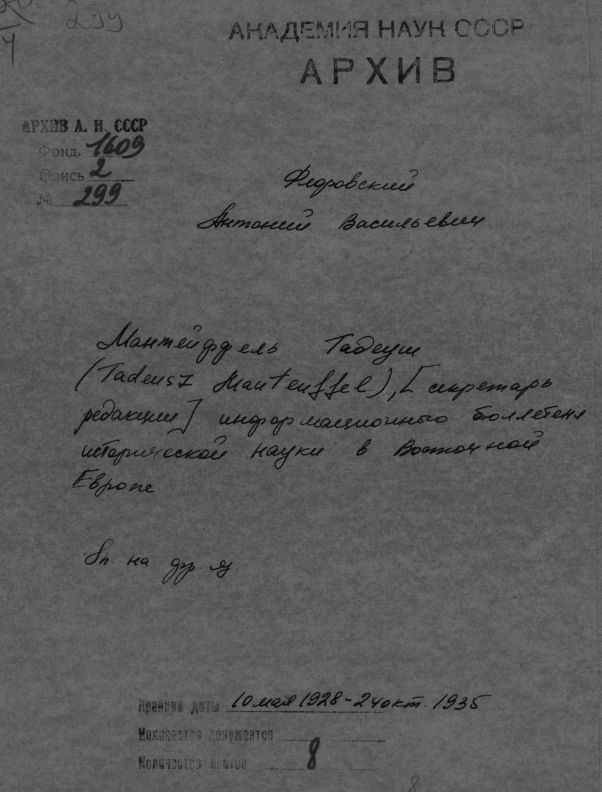 299
4
АКАДЕМИЯ НАУК СССР
АРХИВ
АРХИВ А. Н. СССР
Фонд. 1609
Опись 2
№ 299
Флоровский
Антоний Васильевич
Мантейффель Тадеуш
(Tadeusz Manteuffel), [секретарь
редакции] информационного бюллетеня
исторической науки в Восточной
Европе
на фр. яз.
Крайние даты 10 мая 1928 - 24 окт. 1935
Количество документов
Количество листов 8
8